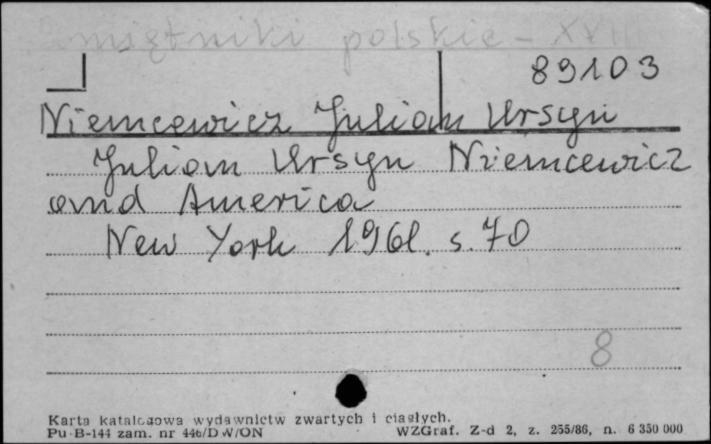 Pamiętniki polskie - XVIII
89103
Niemcewicz Julian Ursyn
Julian Ursyn Niemcewicz
and America
New York 1961. s. 70
8
Karta katalogowa wydawnictw zwartych i ciągłych.
Pu-B-144 zam. nr 446/DW/ON WZGraf. Z-d 2, z. 255/86, n. 6 350 000